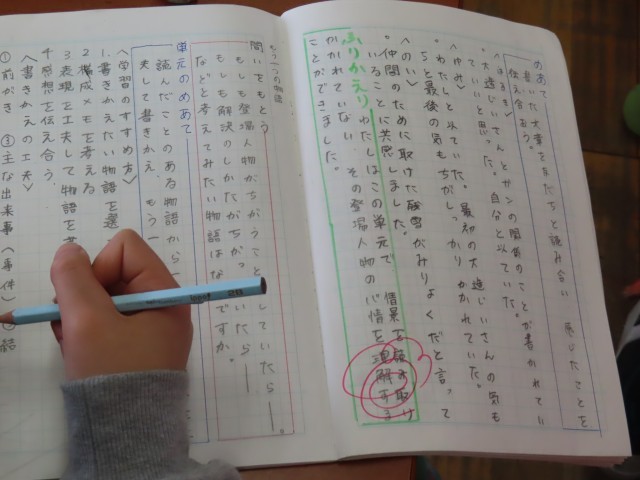 めあて
書いた文章を友だちと読み合い、感じたことを
伝え合おう。
〈はるき〉
・大造じいさんとガンの関係のことが書かれてい
ていいと思った。自分と似ていた。
〈ゆみ〉
・わたしと似ていた。最初の大造じいさんの気も
ちと最後の気もちがしっかりかかれていた。
〈のい〉
・仲間のために取けた
がみりよくだと言って
いることに共感しました。
ふりかえり
わたしはこの単元で、情景を読み取け
かかれていない、その登場人物の心情を理解する
ことができました。
もう一つの物語
問いをもとう
もしも登場人物がちがうことをしていたら――。
もしも解決のしかたがちがっていたら――
などと考えてみたい物語はないですか。
単元のめあて
読んだことのある物語から
夫して書きかえ、もう一
〈学習のすすめ方〉
1.書きかえたい物語を選
2.構成メモを考える
3.表現を工夫して物語を書
4.感想を伝え合う。
〈書きかえの工夫〉
①前がき ③主な出来事〈事件〉 結